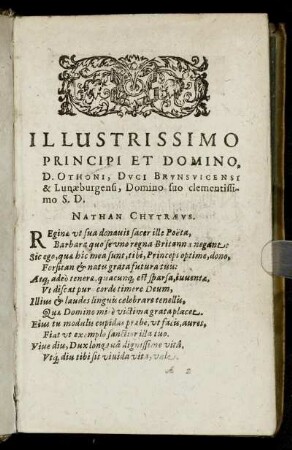 ILLUSTRISSIMO
PRINCIPI ET DOMINO,
D. OTHONI, DVCI BRVNSVICENSI
& Lunæburgensi, Domino suo clementissi-
mo S. D.
NATHAN CHYTRÆVS.
REginæ vt sua donauit sacer ille Poëta,
Barbara quo se vno regna Britanna negant:
Sic ego, quæ hic mea sunt, tibi, Princeps optime, dono,
Forsitan & natu grata futura tuo:
Atq; adeò teneræ, quacunq; est sparsa, iuuentæ,
Vt discat pur corde timere Deum,
Illius & laudes linguis celebrare tenellis,
Qua Domino mirè victima grata placet.
Eius tu modulis cupidas præbe, vt facis, aures,
Fiat vt exemplo sanctior illa tuo.
Viue diu, Dux longæuâ dignissime vitâ,
Vtq; diu tibi sit viuida vita, vale.
A 2